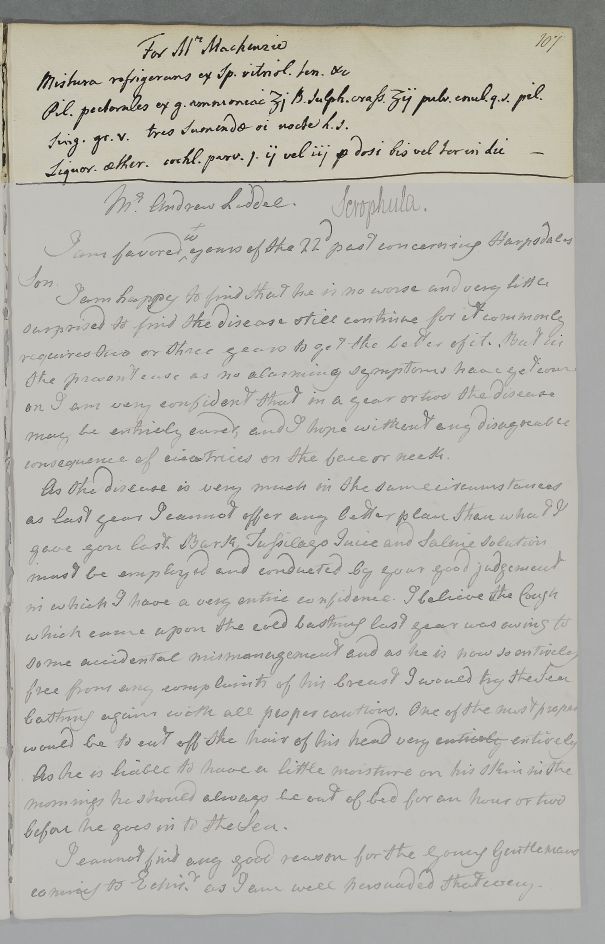 107
For Mrs Mackenzie
Mistura refrigerans ex Sp. vitriol. ten. &c
Pil. pectorales ex g. ammoniac ʒj B. Sulph. crass. ʒij pulv. enul. q.s. pil.
sing. gr. v. tres Sumendæ oi nocte h.s.
Liquor. æther. cochl. parv. j. ij vel iij p dosi bis vel ter in die —
Mr. Andrew Liddel. Scrophula.
I am favored wt yours of the 22d past concerning Harpsdales
Son.
I am happy to find that he is no worse and very little
surprised to find the disease still continue for it commonly
requires two or three years to get the better of it. But in
the present case as no alarming symptoms have yet come
on I am very confident that in a year or two the disease
may be entirely cured, and I hope without any disagreable
consequence of cicatrices on the face or neck.
As the disease is very much in the same circumstances
as last year I cannot offer any better plan than what I
gave you last. Bark, Tussilago Juice and Saline Solution
must be employed and conducted by your good judgement
in which I have a very entire confidence. I believe the Cough
which came upon the cold bathing last year was owing to
some accidental mismanagement and as he is now so entirely
free from any complaints of his breast I would try the Sea
bathing again with all proper cautions. One of the most proper
would be to cut off the hair of his head very entirely entirely
As he is liable to have a little moisture on his skin in the
mornings he should always be out of bed for an hour or two
before he goes in to the Sea.
I cannot find any good reason for the Young Gentlemans
coming to Edinr. as I am well persuaded that every